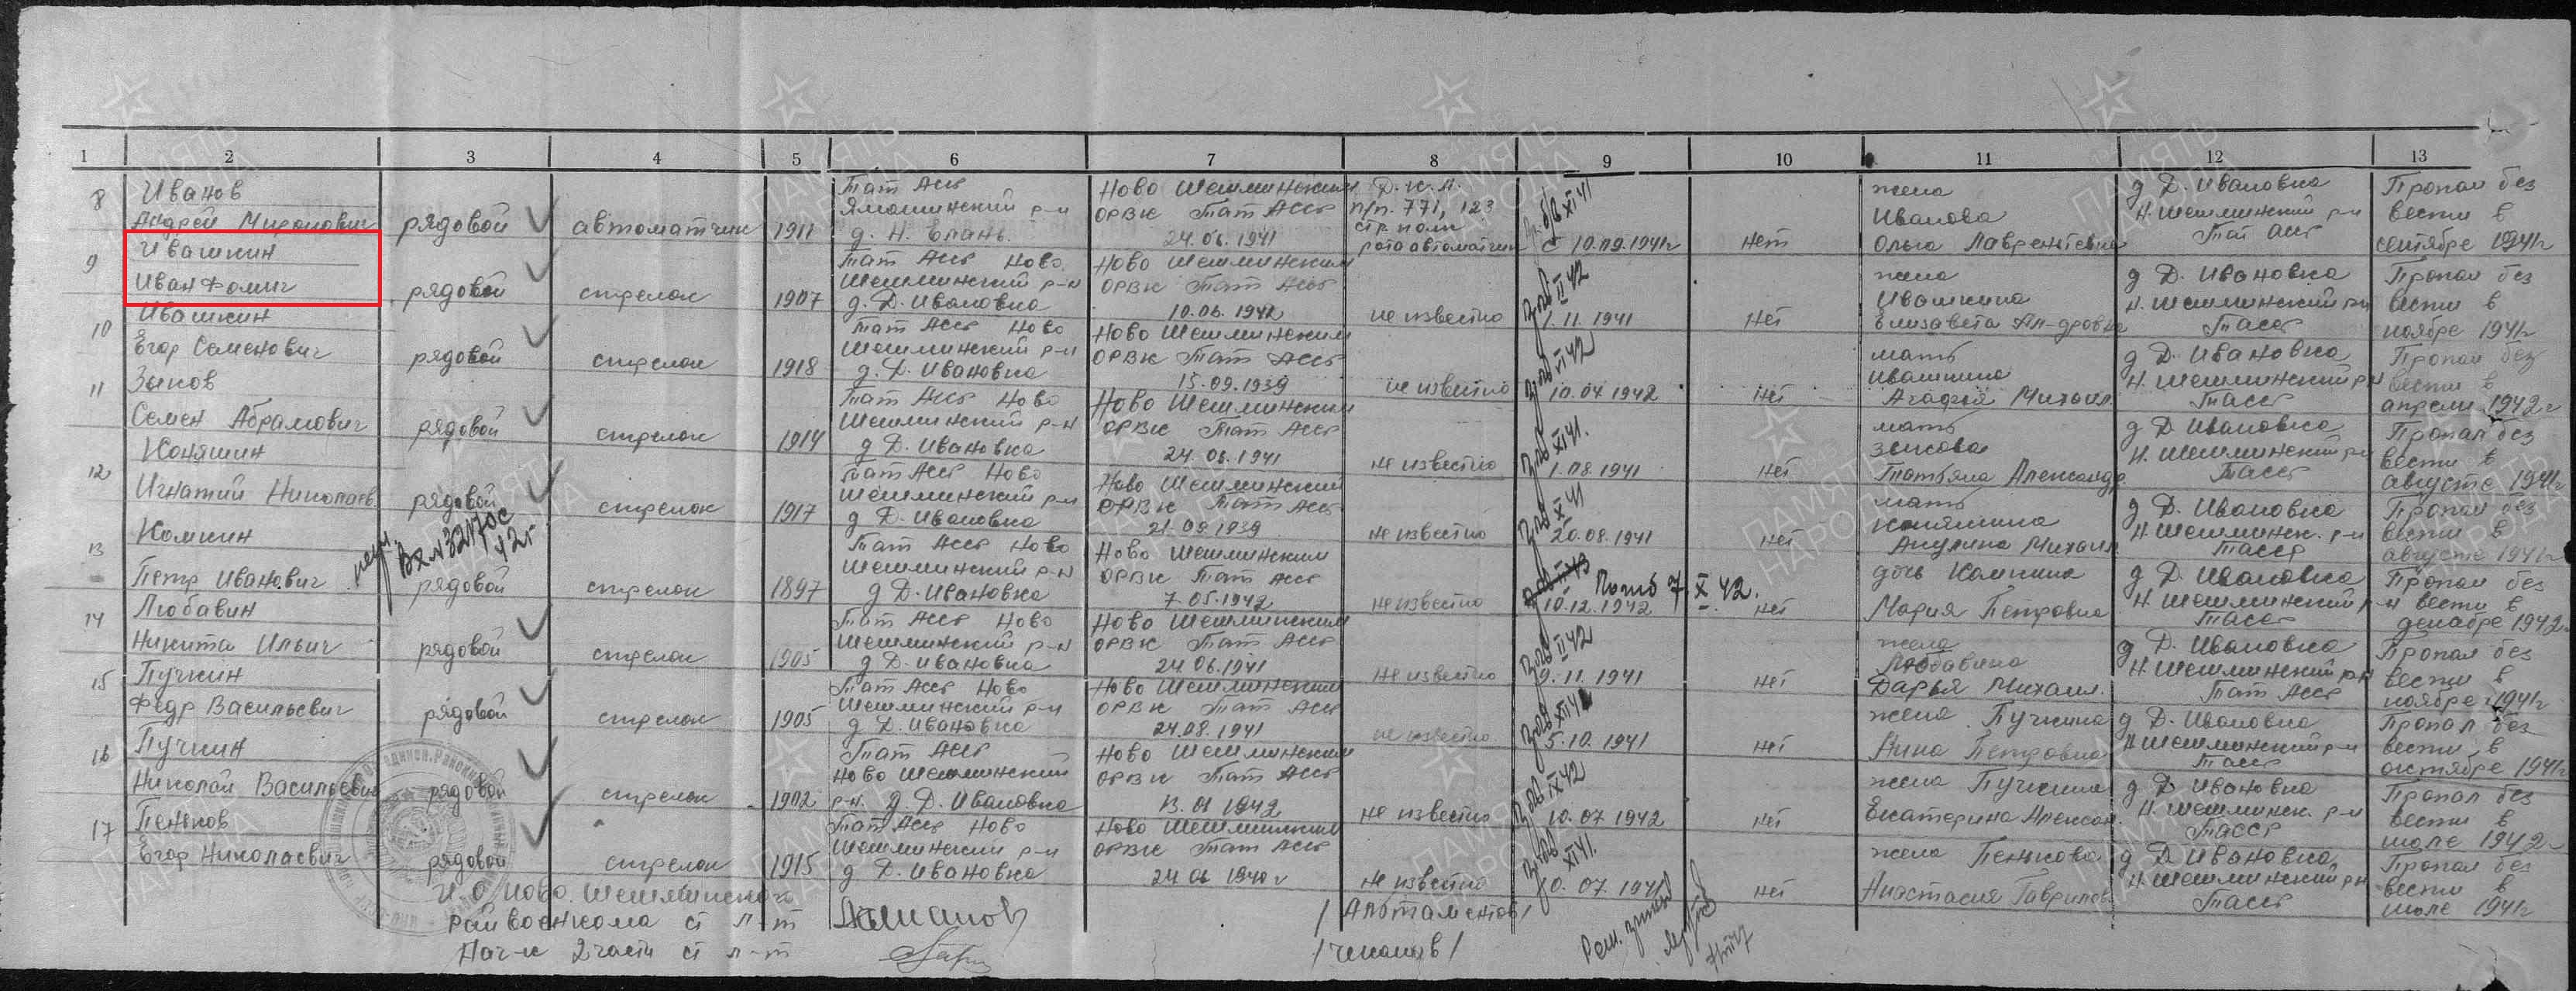 1 2 3 4 5 6 7 8 9 10 11 12 13
8 Иванов Андрей Миронович рядовой автоматчик 1911 Тат Асср Ямашинский р-н д. Н. Елань. Ново Шешминским ОРВК Тат Асср 24.06.1941 Д.К.А. п/п. 771, 123 стр. полк рота автоматчик 10.09.1941г нет жена Иванова Ольга Лаврентевна д Д. Ивановка Н. Шешминский р-н Тат Асср Пропал без вести в сентябре 1941г
9 Ивашкин Иван Фомич рядовой стрелок 1907 Тат Асср Ново Шешминский р-н д. Д. Ивановка Ново Шешминским ОРВК Тат Асср 10.06.1941 не известно 1.11.1941 нет жена Ивашкина Елизавета Ал-дровна д Д. Ивановка Н. Шешминский р-н Тасср Пропал без вести в ноябре 1941г
10 Ивашкин Егор Семенович рядовой стрелок 1918 Тат Асср Ново Шешминский р-н д. Д. Ивановка Ново Шешминским ОРВК Тат Асср 15.09.1939 не известно 10.04.1942 нет мать Ивашкина Агафья Михайл. д Д. Ивановка Н. Шешминский р-н Тасср Пропал без вести в апреле 1942г
11 Зыков Семен Абрамович рядовой стрелок 1914 Тат Асср Ново Шешминский р-н д Д. Ивановка Ново Шешминским ОРВК Тат Асср 24.06.1941 не известно 1.08.1941 нет мать Зыкова Татьяна Александр. д Д. Ивановка Н. Шешминский р-н Тасср Пропал без вести в августе 1941г
12 Коняшин Игнатий Николаев рядовой стрелок 1917 Тат Асср Ново Шешминский р-н д Д. Ивановка Ново Шешминский ОРВК Тат Асср 21.09.1939 не известно 20.08.1941 нет мать Коняшина Акулина Михаил. д Д. Ивановка Н. Шешминск. р-н Тасср Пропал без вести в августе 1941г
13 Комкин Петр Иванович Вх. №32170с 42г рядовой стрелок 1897 Тат Асср Ново Шешминский р-н д Д. Ивановка Ново Шешминским ОРВК Тат Асср 7.05.1942 не известно 10.12.1942 Погиб 7.X.42. нет дочь Комкина Мария Петровна д Д. Ивановка Н. Шешминский р-н Тасср Пропал без вести в декабре 1942г
14 Любавин Никита Ильич рядовой стрелок 1905 Тат Асср Ново Шешминский р-н д Д. Ивановка Ново Шешминским ОРВК Тат Асср 24.06.1941 не известно 9.11.1941 нет жена Любавина Дарья Михаил. д Д. Ивановка Н. Шешминский р-н Тат Асср Пропал без вести в ноябре 1941г
15 Пучкин Федр Васильевич рядовой стрелок 1905 Тат Асср Ново Шешминский р-н д Д. Ивановка Ново Шешминским ОРВК Тат Асср 24.08.1941 не известно 5.10.1941 нет жена Пучкина Нина Петровна д Д. Ивановка Н Шешминский р-н Тасср Пропал без вести в октябре 1941г
16 Пучкин Николай Васильевич рядовой стрелок 1902 Тат Асср Ново Шешминский р-н. д. Д. Ивановка Ново Шешминским ОРВК Тат Асср 13.01 1942 не известно 10.07 1942 нет жена Пучкина Екатерина Алексан. д Д. Ивановка Н. Шешминск. р-н Тасср Пропал без вести в июле 1942г
17 Пеньков Егор Николаевич рядовой стрелок 1915 Тат Асср Ново Шешминский р-н д Д. Ивановка Ново Шешминским ОРВК Тат Асср не известно нет жена Пенькова Анастасия Гаврилов. д Д. Ивановка, Н. Шешминский р-н Тасср Пропал без вести в июле 1941г
И.О. Ново. Шешминского
райвоенкома ст л-т
Нач-к 2 части ст л-т
ПАМЯТЬ НАРОДА